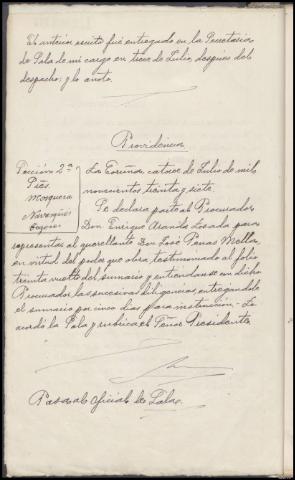 El anterior escrito fué entregado en la Secretaria
de Sala de mi cargo en trece de Julio, despues del
despacho; y lo anoto.
Providencia
Sección 2ª
Pres.
Mosquera
Navarqües
La Coruña, catorce de Julio de mil
novecientos treinta y siete.
Se declara parte al Procurador
Don Enrique Aranda Losada para
representar al querellante Don José Penas Mella,
en virtud del poder que obra testimoniado al folio
treinta vuelto del sumario y entiéndanse con dicho
Procurador las sucesivas diligencias, entregándole
el sumario por cinco días para instrucción. Lo
acordó la Sala y rubrica el Señor Presidente.
Pasa al oficial de Sala.